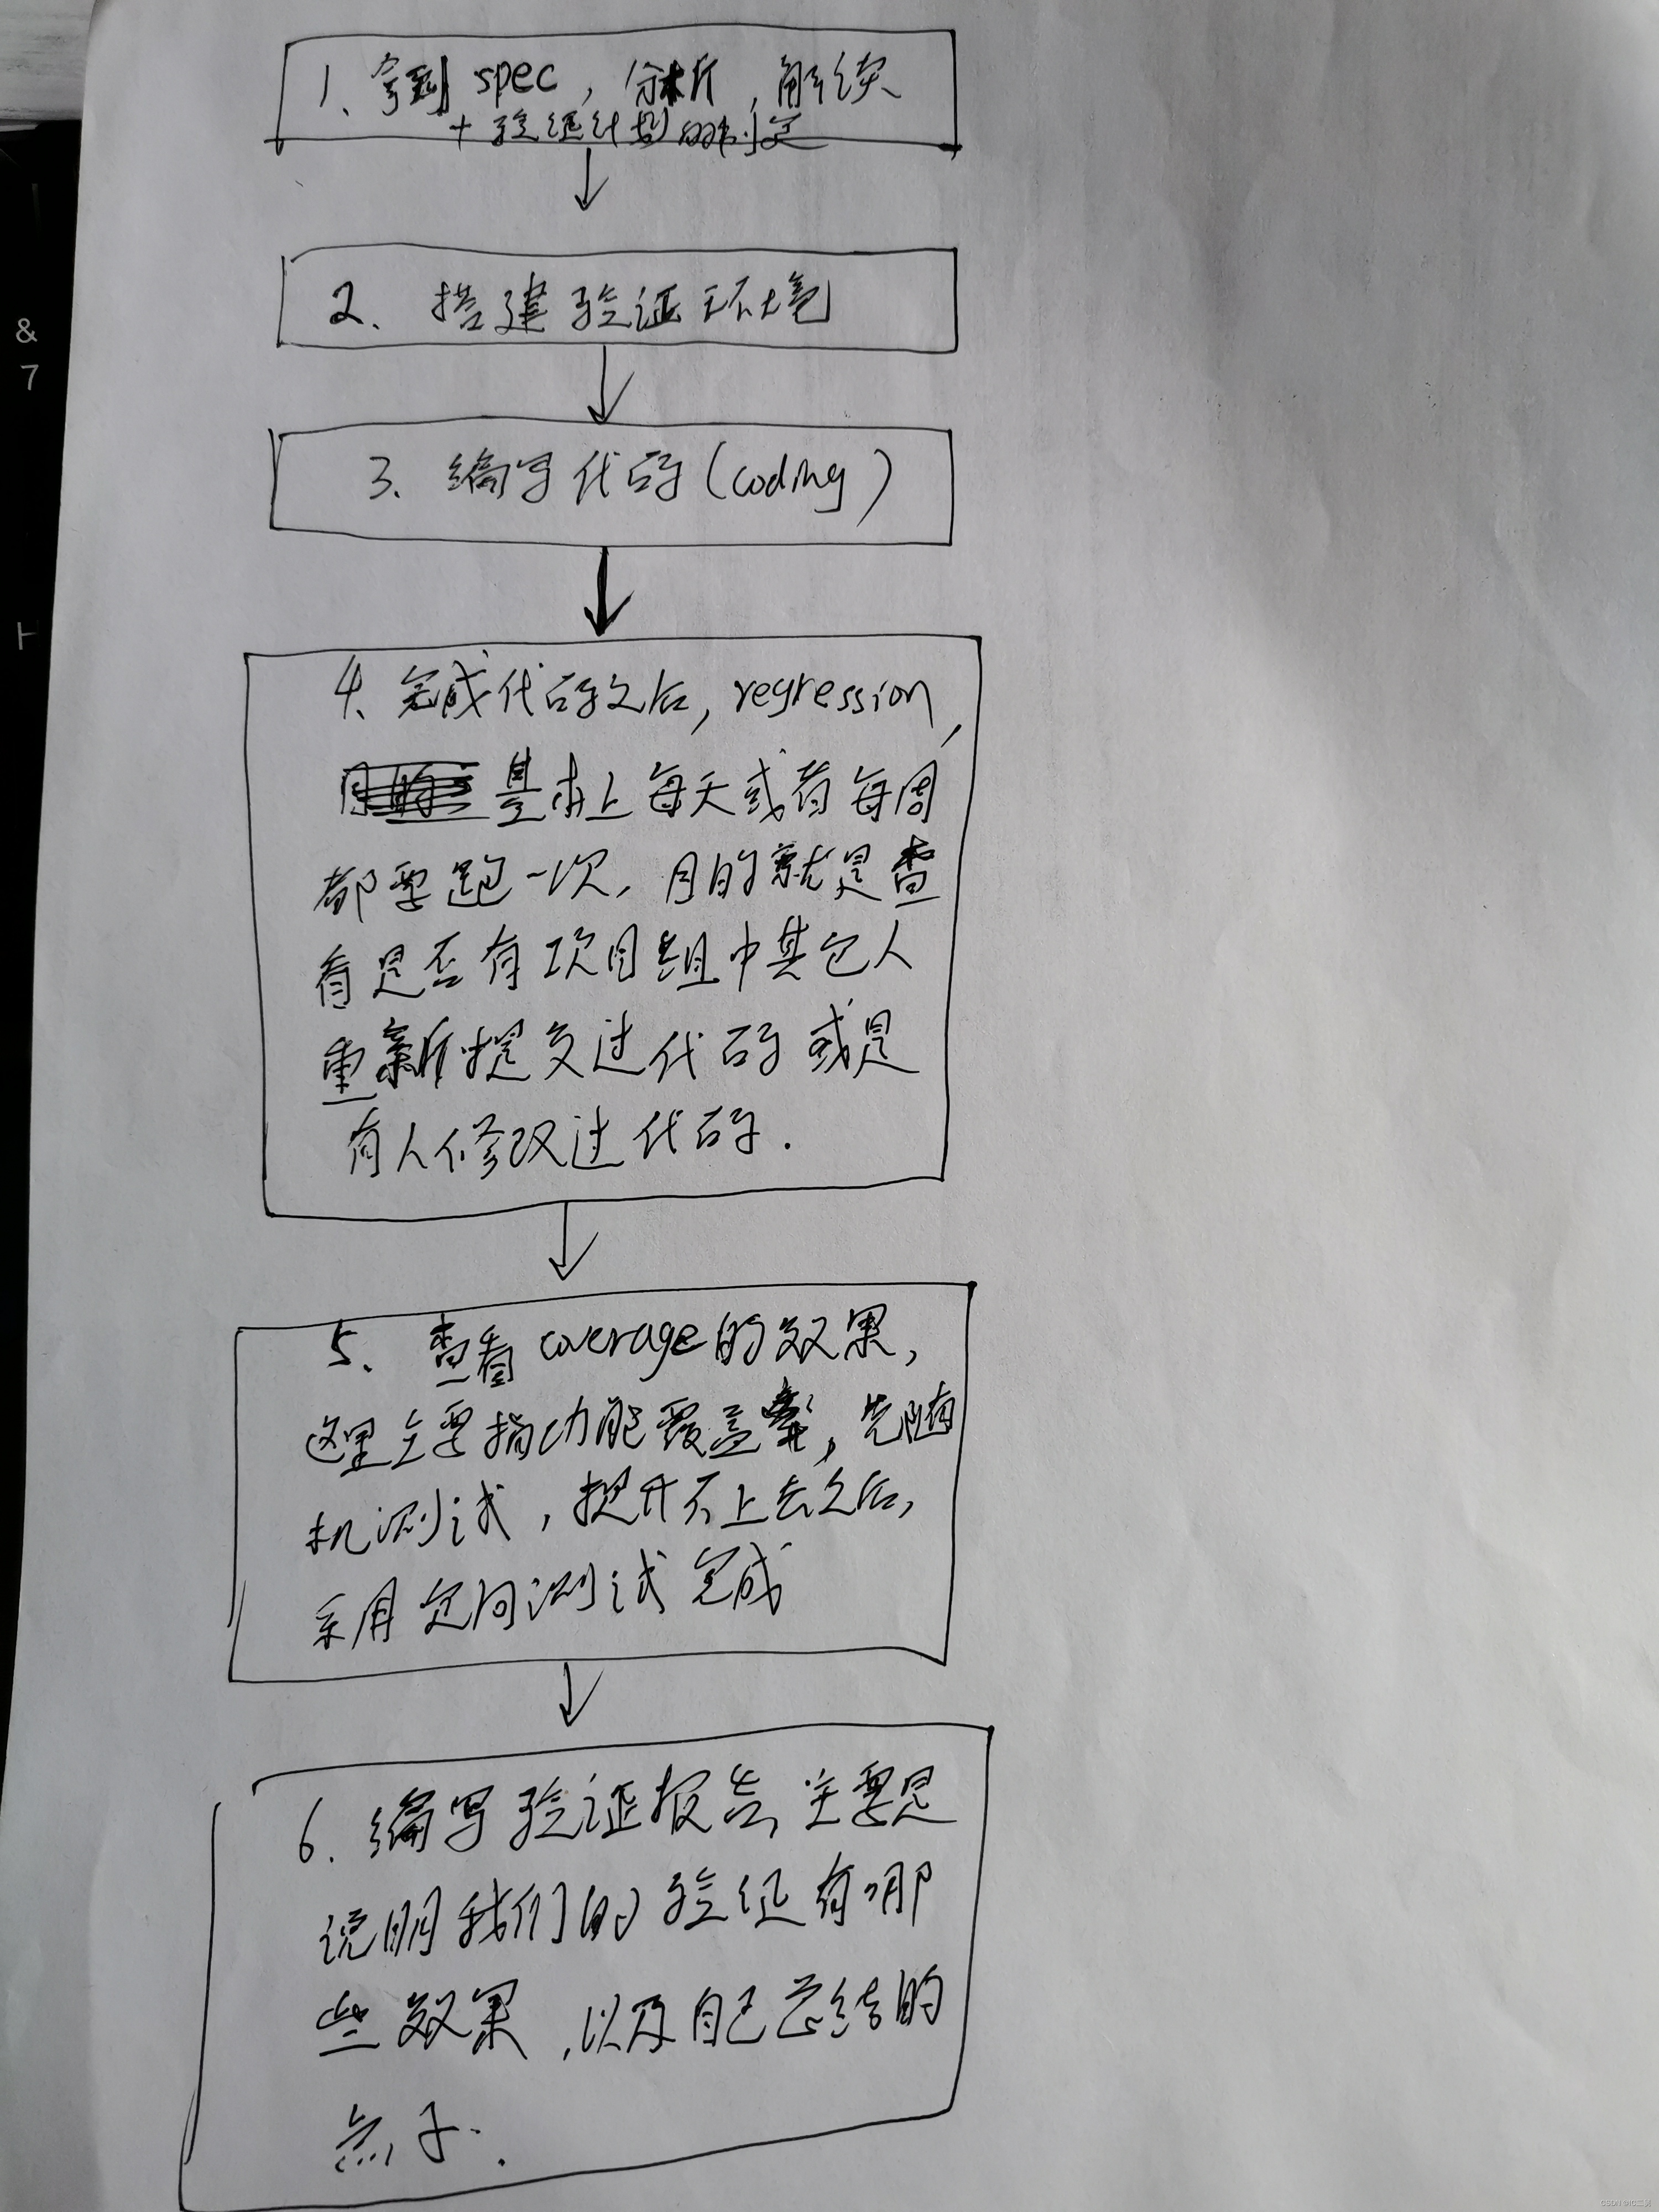 &
7
H
1、拿到spec，分析，解读
+验证计划的制定
2、搭建验证环境
3、编写代码(coding)
4、完成代码之后，regression，
基本上每天或者每周
都要跑一次，目的就是查
看是否有项目组中其它人
重新提交过代码或是
有人修改过代码.
5、查看coverage的效果，
这里主要指功能覆盖率，先随
机测试，提升不上去之后，
采用定向测试完成
6.编写验证报告，主要是
说明我们的验证有哪
些效果，以及自己总结的
点子.